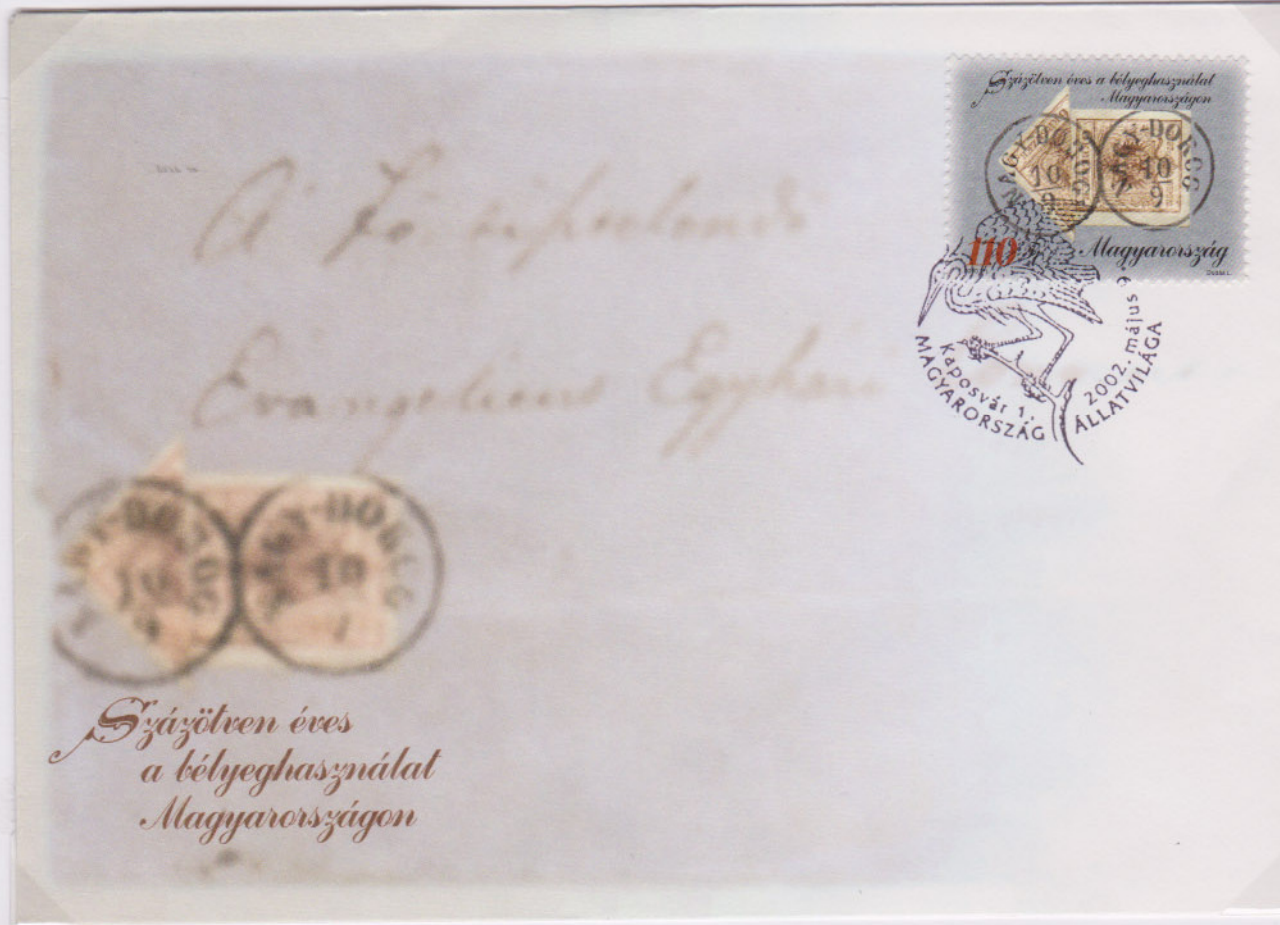 Százötven éves a bélyeghasználat
Magyarországon
NAGY-DOROG
10
9
NAGY-DOROG
10
9
110 Ft
Magyarország
Kaposvár 1.
2002. május 6
MAGYARORSZÁG ÁLLATVILÁGA
A
Evangelicus Egyház
NAGY-DOROG
10
9
NAGY-DOROG
10
Százötven éves
a bélyeghasználat
Magyarországon